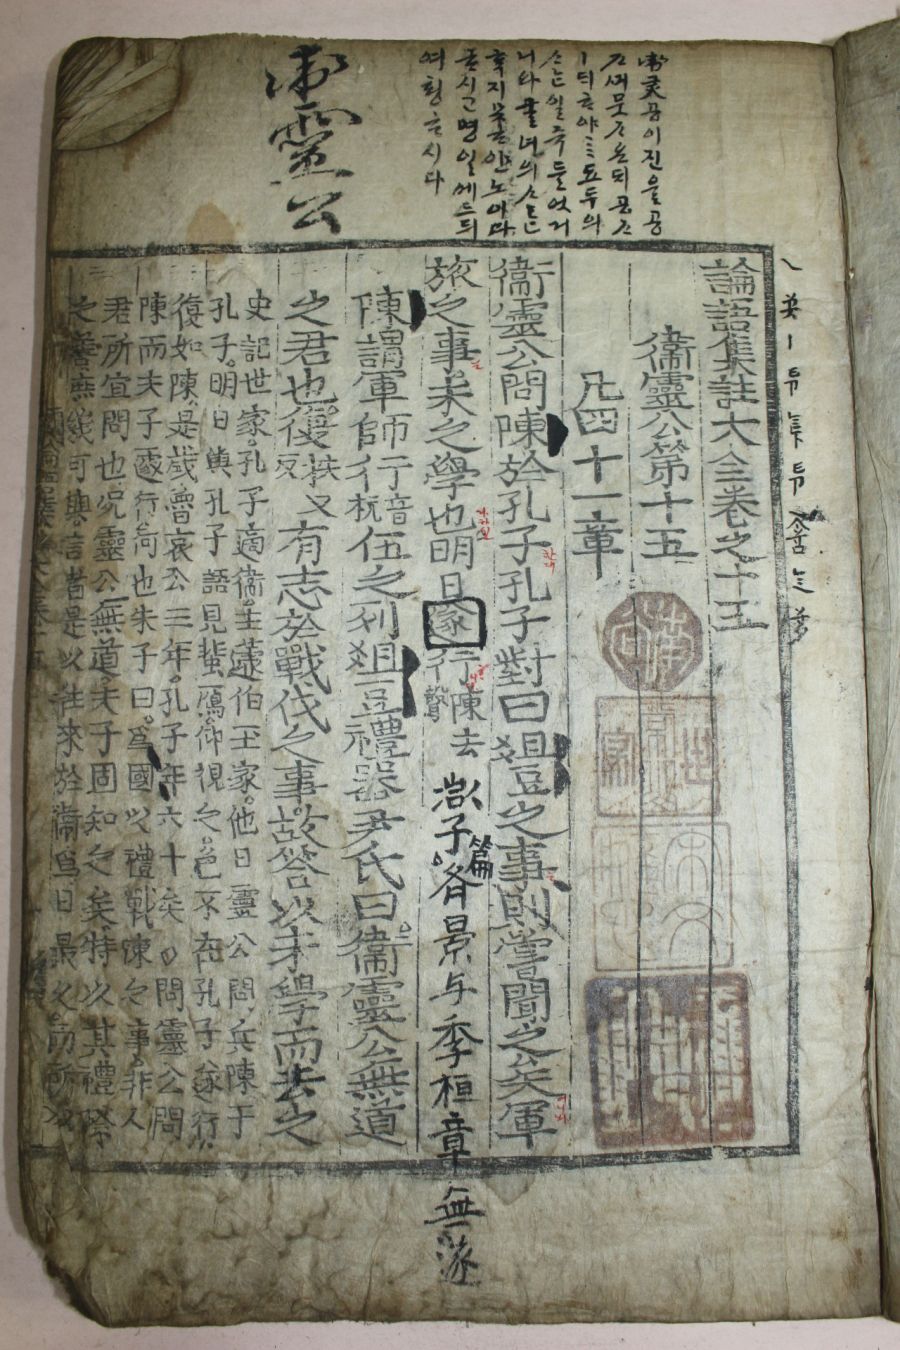 衛靈公이진을공
子띄무르온되공子
ㅣ띄ᄒᆞ야
일즉들엇거
니와군녀의
ᄒᆞ지못ᄒᆞ안노이다
ᄒᆞ시고명일에드듸
여ᄒᆡᆼᄒᆞ시다
衛靈公
論語集註大全卷之十五
衛靈公第十五
凡四十一章
衛靈公問陳於孔子孔子對曰俎豆之事則嘗聞之矣軍
旅之事未之學也明日遂行 陳去聲
篇
孟子各景与季桓章無遂
陳謂軍師行音杭伍之列俎豆禮器尹氏曰衛靈公無道
之君也復扶又反有志於戰伐之事故答以未學而去之
史記世家孔子適衛主蘧伯玉家他日靈公問兵陳于
孔子明日與孔子語見蜚鴈仰視之色不在孔子遂行
復如陳是歲魯哀公三年孔子年六十矣○問靈公問
陳而夫子遽行何也朱子曰爲國以禮戰陳之事非人
君所宜問也況靈公無道夫子固知之矣特以其禮際
之善庶幾可與言者是以往來於衛爲日最久而所以